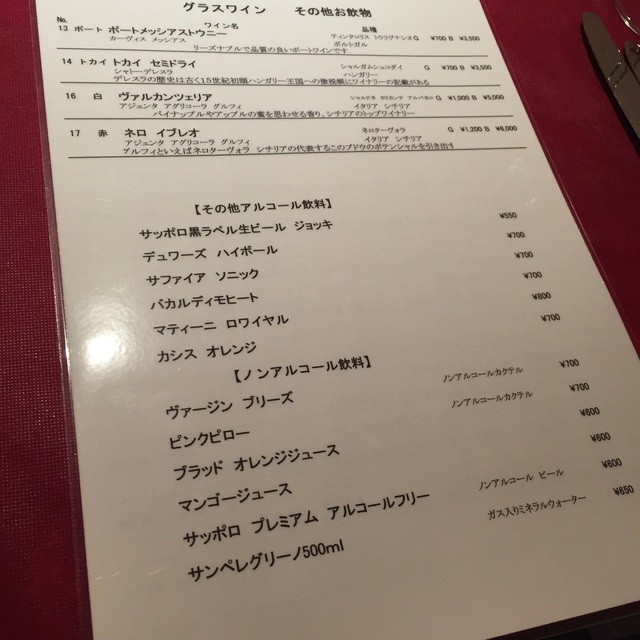 グラスワイン その他お飲物
No. ワイン名 品種
13 ポート ポートメッシアストウニー ティンタロリス トウリガナシオ G ¥700 B ¥3,500
カーヴィス メッシアス ポルトガル
リーズナブルで品質の良いポートワインです
14 トカイ トカイ セミドライ シャルガムシュコダイ G ¥700 B ¥3,500
シャトーデレスラ ハンガリー
デレスラの歴史は古く15世紀初頭ハンガリー王国への徴税帳にワイナリーの記載がある
16 白 ヴァルカンツェリア G ¥1,000 B ¥5,000
アジェンタ アグリコーラ グルフィ イタリア シチリア
パイナップルやアップルの蜜を思わせる香り、シチリアのトップワイナリー
17 赤 ネロ イブレオ ネロターヴォラ G ¥1,200 B ¥6,000
アジェンタ アグリコーラ グルフィ イタリア シチリア
グルフィといえばネロターヴォラ シチリアの代表するこのブドウのポテンシャルを引き出す
【その他アルコール飲料】
サッポロ黒ラベル生ビール ジョッキ ¥550
デュワーズ ハイボール ¥700
サファイア ソニック ¥700
バカルディモヒート ¥700
マティーニ ロワイヤル ¥800
カシス オレンジ ¥700
【ノンアルコール飲料】
ヴァージン ブリーズ ノンアルコールカクテル ¥700
ピンクピロー ノンアルコールカクテル ¥700
ブラッド オレンジジュース ¥600
マンゴージュース ¥600
サッポロ プレミアム アルコールフリー ノンアルコール ビール ¥600
サンペレグリーノ500ml ガス入りミネラルウォーター ¥650